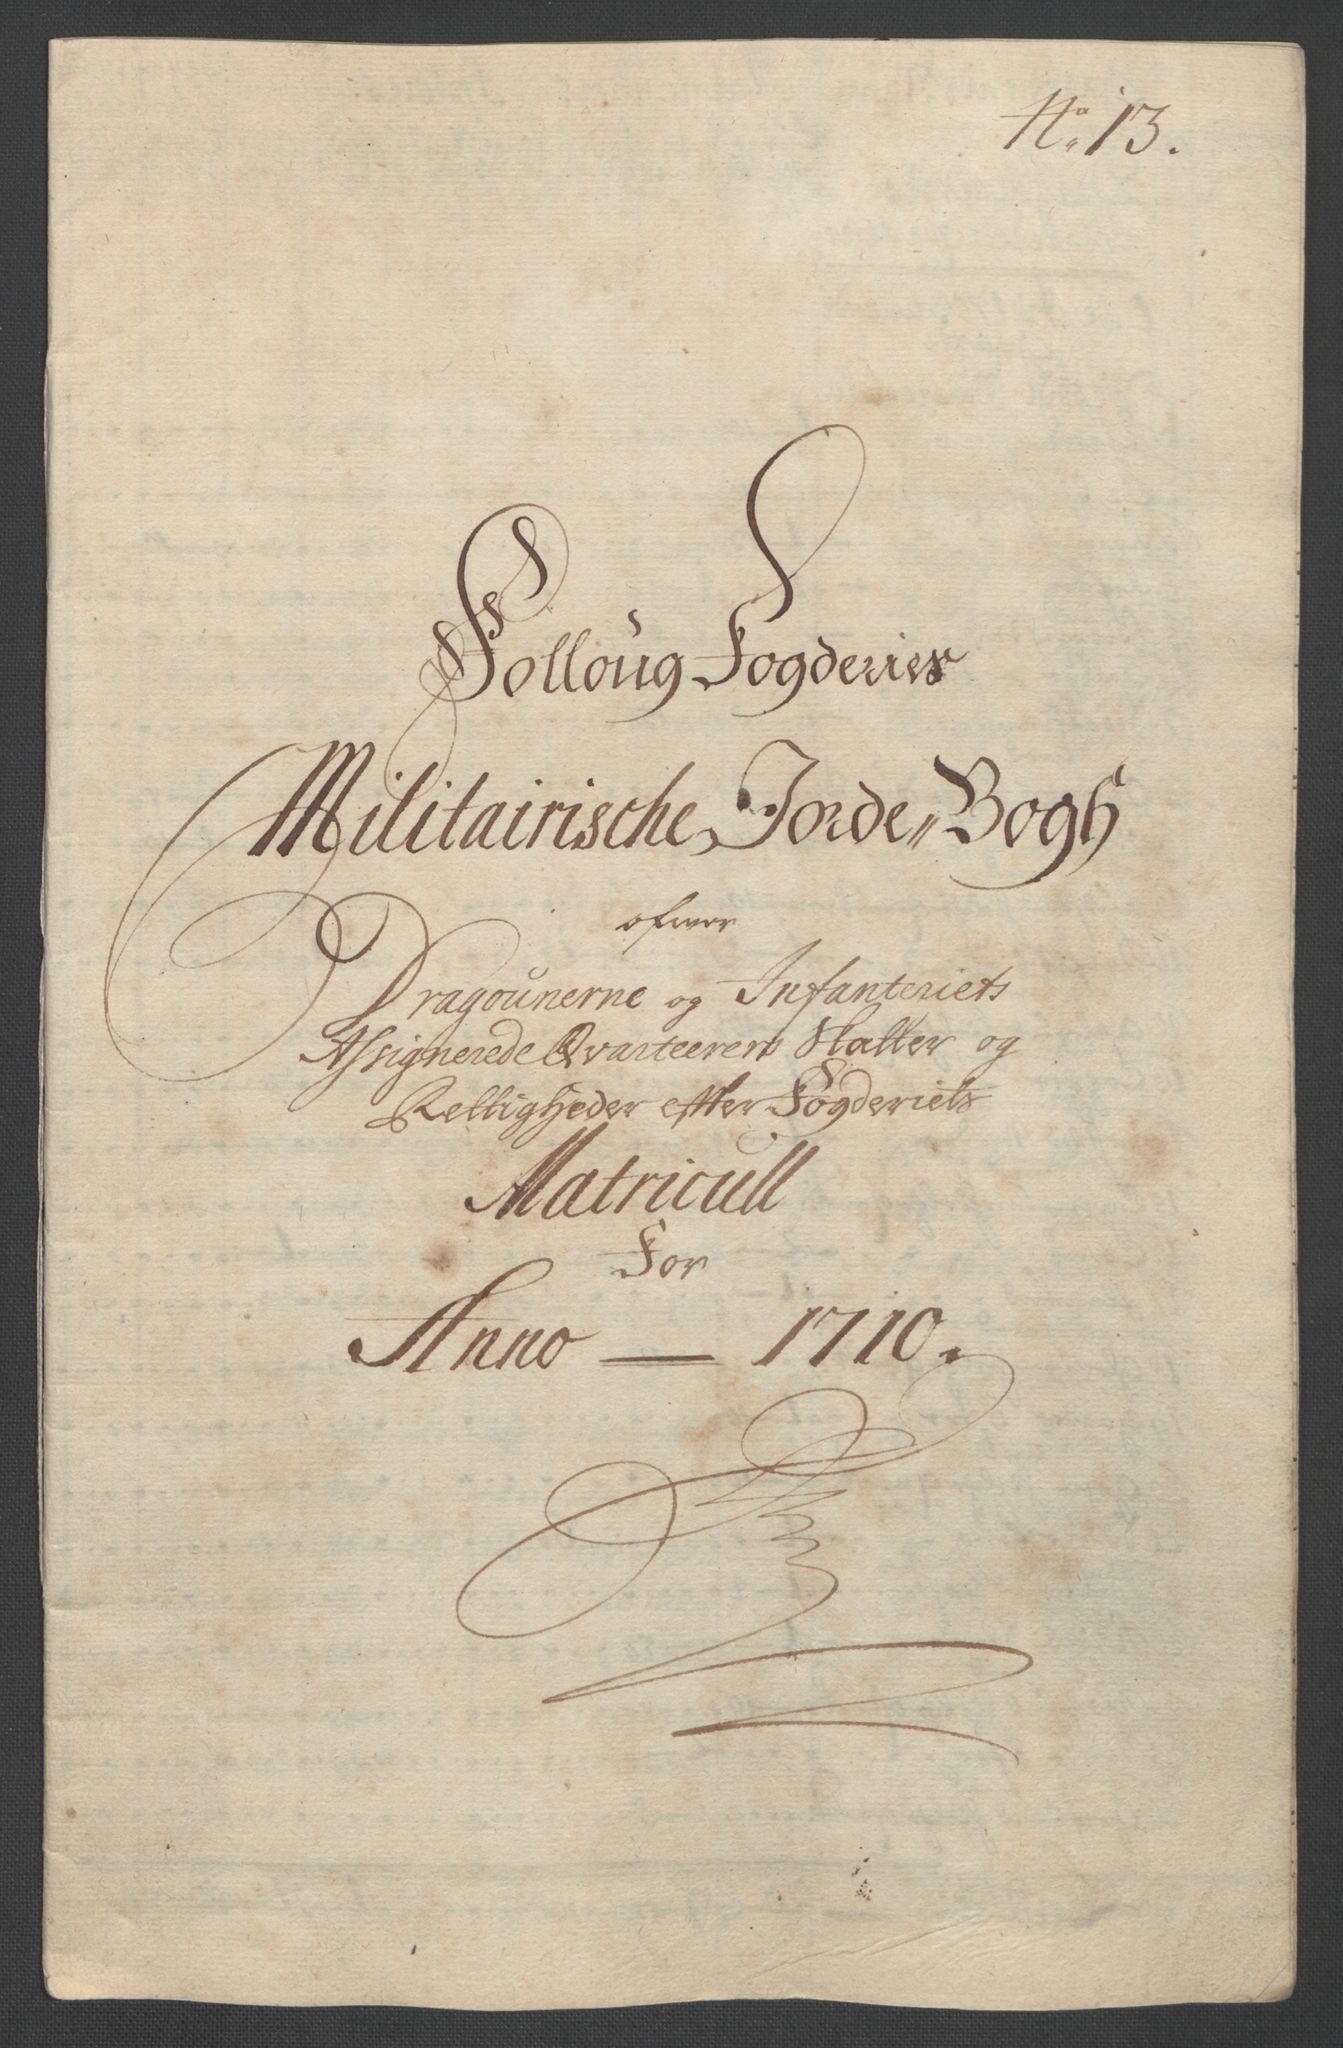 No. 13.
Følloug Fogderies
Militairische Jorde-Bogh
ofwer
Dragounerne og Infanteriets
Assignerede Qvarteerers Skatter og
Rettigheder efter Fogderiets
Matricull
For
Anno — 1710.